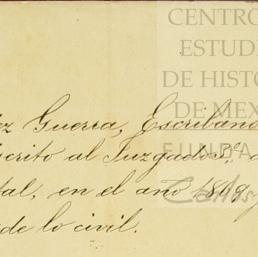 CENTRO
ESTUDI
DE HISTO
DE MEX
FUNDA
ez Guerra, Escribano
scrito al Juzgado 5º
tal, en el año 1869
de lo civil.